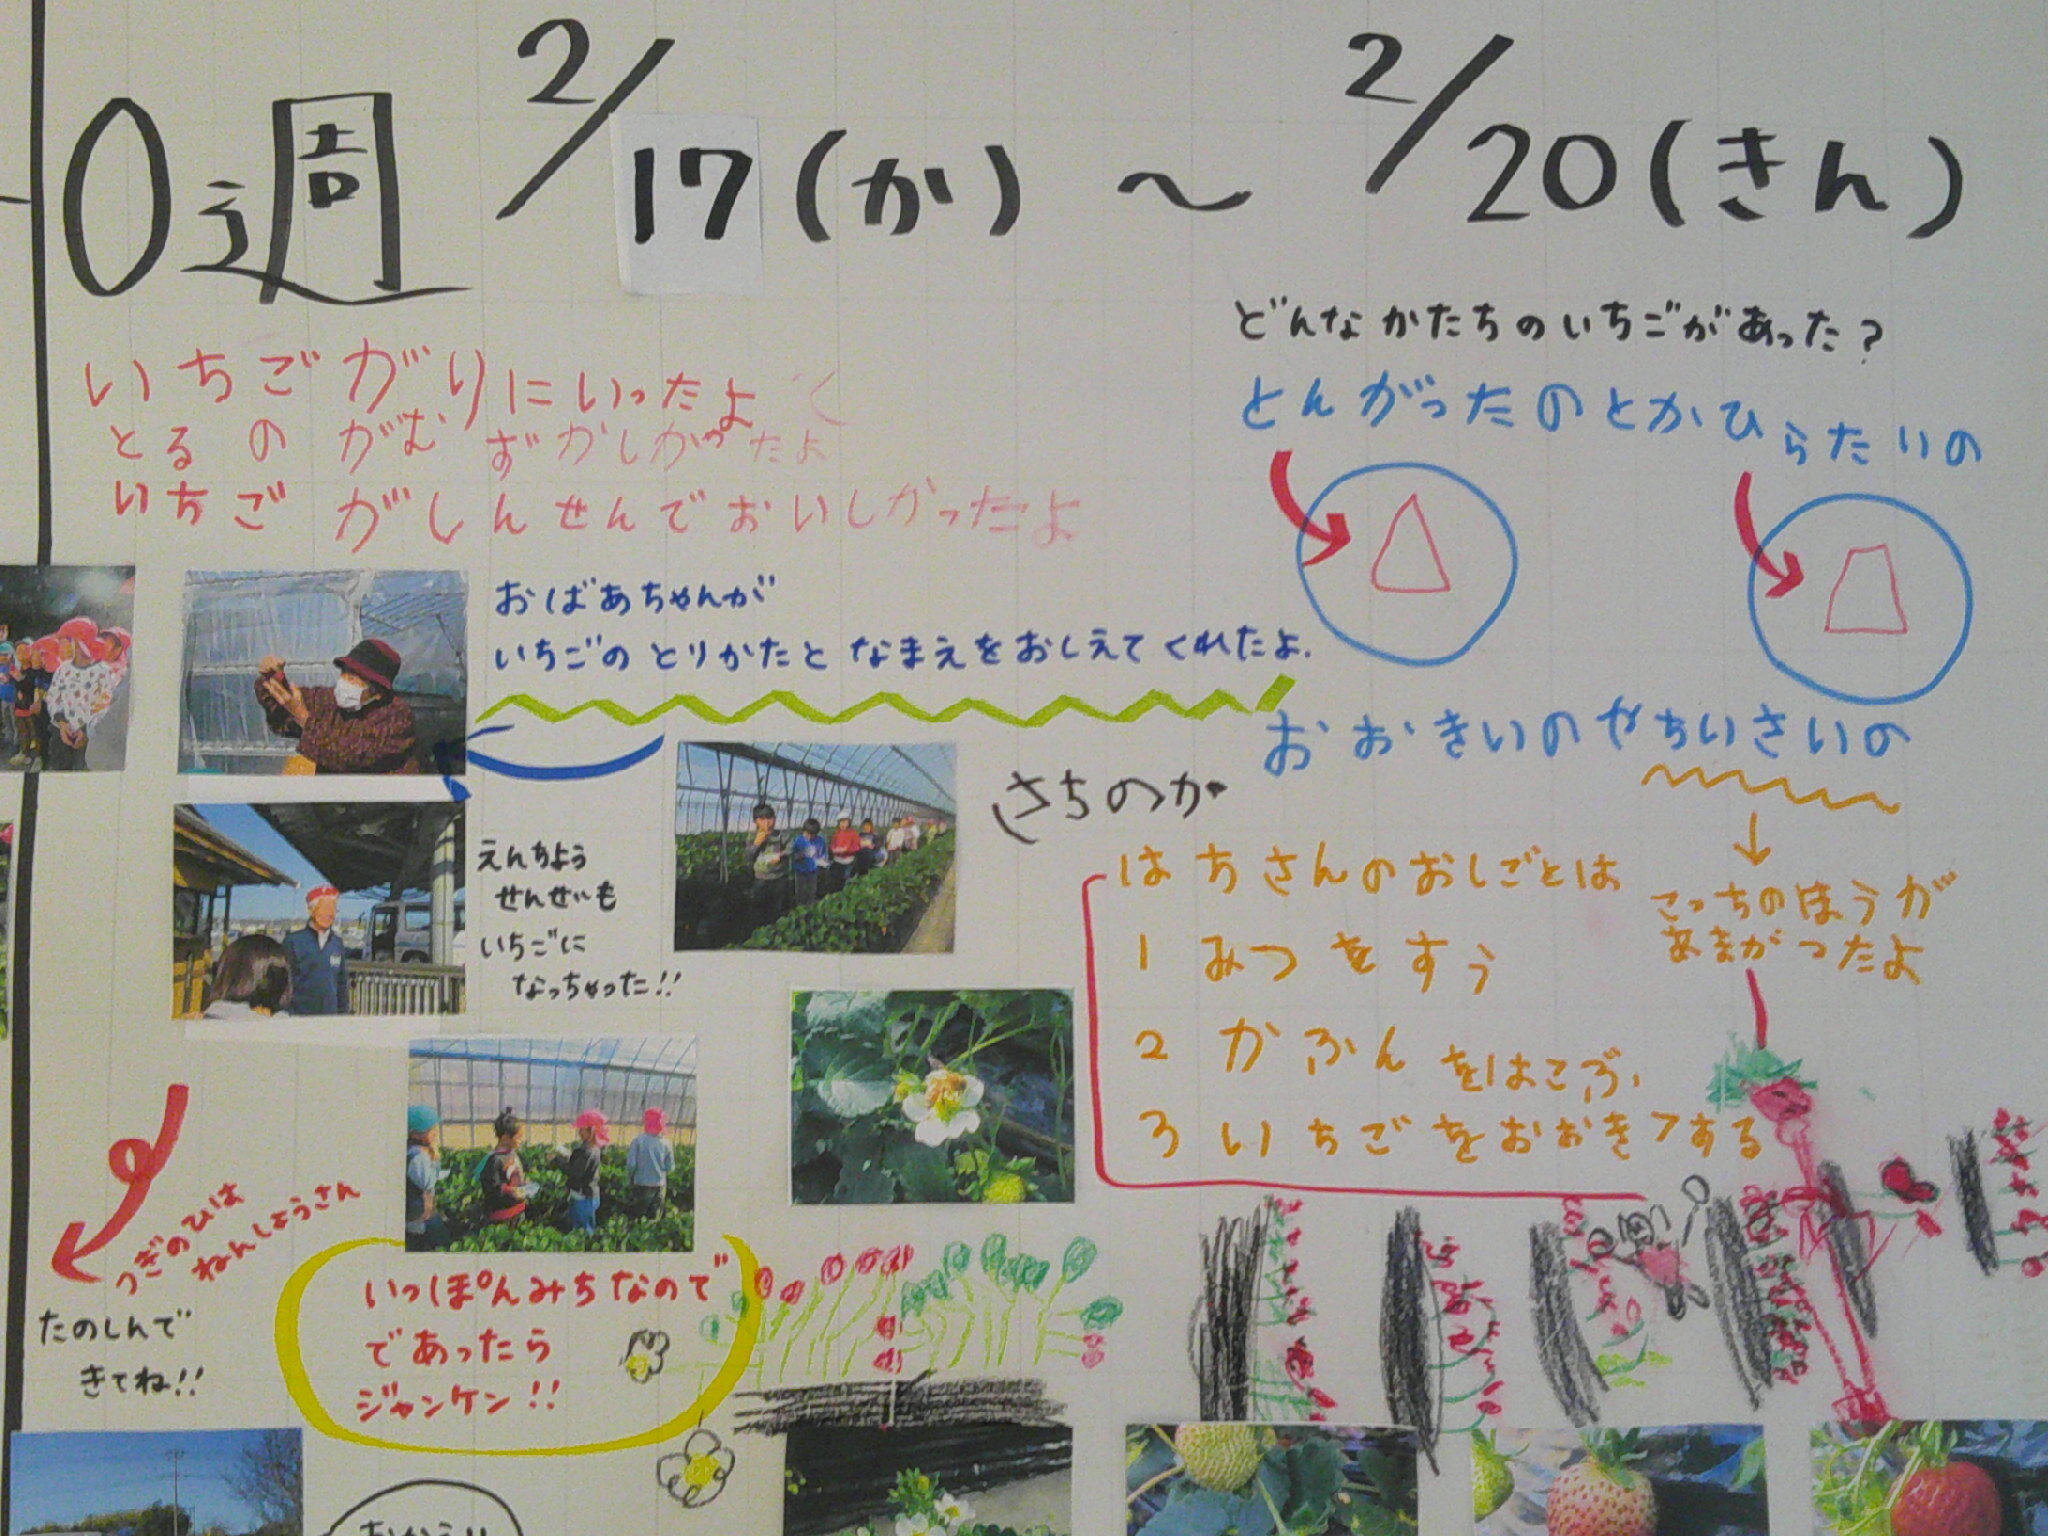 0週 2/17(か) 〜 2/20(きん)
いちごがりにいったよ
とるのがむずかしかったよ
いちごがしんせんでおいしかったよ
どんなかたちのいちごがあった？
とんがったのとかひらたいの
おばあちゃんが
いちごのとりかたとなまえをおしえてくれたよ.
おおきいのやちいさいの
こっちのほうが
あまがつたよ
さちのか
えんちょう
せんせいも
いちごに
なっちゃった!!
はちさんのおしごとは
1 みつをすう
2 かふんをはこぶ
3 いちごをおおきくする
つぎのひは
ねんしょうさん
たのしんで
きてね!!
いっぽんみちなので
であったら
ジャンケン!!